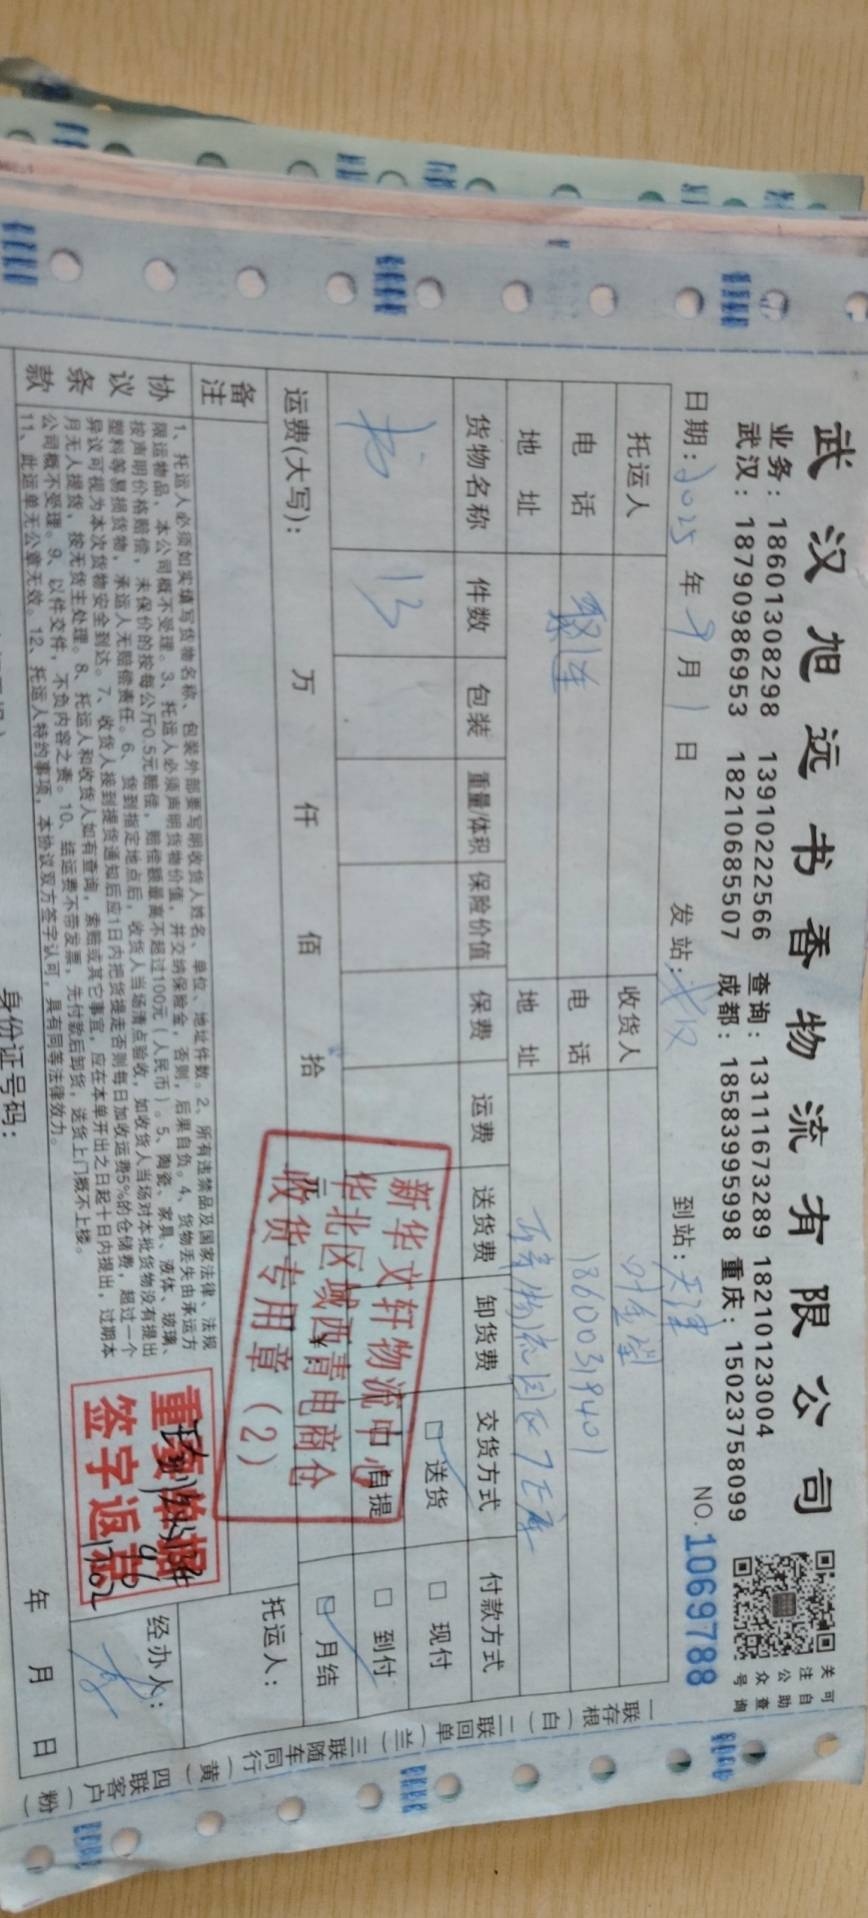 武汉旭远书香物流有限公司
业务：18601308298 13910222566 查询：13111673289 18210123004
武汉：18790986953 18210685507 成都：18583995998 重庆：15023758099
关注公众号
可自助查询
日期：2025年9月1日 发站：武汉 到站：天津 NO.1069788
托运人 收货人 叶金玺
电话 聚连 电话 18600319401
地址 地址
货物名称 件数 包装 重量/体积 保险价值 保费 运费 送货费 卸货费 交货方式 付款方式
书 13 □送货 □现付
自提 □到付
运费(大写)： 万 仟 佰 拾 元 □月结
备注
托运人：
新华文轩物流中心
华北区域西青电商仓
收货专用章（2）
协议条款
1、托运人必须如实填写货物名称、包装外部要写明收货人姓名、单位、地址件数。2、所有违禁品及国家法律、法规
限运物品，本公司概不受理。3、托运人必须声明货物价值，并交纳保险金，否则，后果自负。4、货物丢失由承运方
按声明价格赔偿，未保价的按每公斤0.5元赔偿，赔偿额最高不超过100元（人民币）。5、陶瓷、家具、液体、玻璃、
塑料等易损货物，承运人无赔偿责任。6、货到指定地点后，收货人当场清点验收，如收货人当场对本批货物没有提出
异议可视为本次货物安全到达。7、收货人接到提货通知后应1日内把货提走否则每日加收运费5%的仓储费，超过一个
月无人提货，按无货主处理。8、托运人和收货人如有查询，索赔或其它事宜，应在本单开出之日起十日内提出，过期本
公司概不受理。9、以件交件，不负内容之责。10、结运费不带发票，先付款后卸货，送货上门概不上楼。
11、此运单无公章无效。12、托运人特约事项，本协议双方签字认可，具有同等法律效力。
签字返
经办人：
身份证号码： 年 月 日
一联存根（白） 二联回单（兰） 三联随车同行（黄） 四联客户（粉）